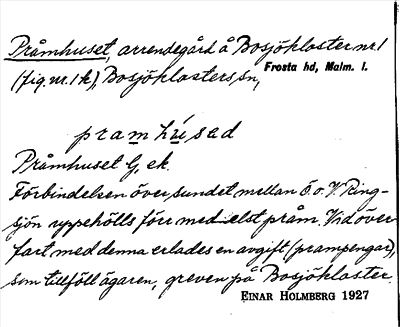 Pråmhuset, arrendegård å Bosjökloster nr 1
(fig. nr. 1 k), Bosjöklosters sn,
Frosta hd, Malm. l.
pramhúsəd
Pråmhuset G. ek.
Förbindelsen över sundet mellan Ö. o. V. Ring-
sjön uppehölls förr medelst pråm. Vid över-
fart med denna erlades en avgift (prampengar),
som tillföll ägaren, greven på Bosjökloster.
EINAR HOLMBERG 1927